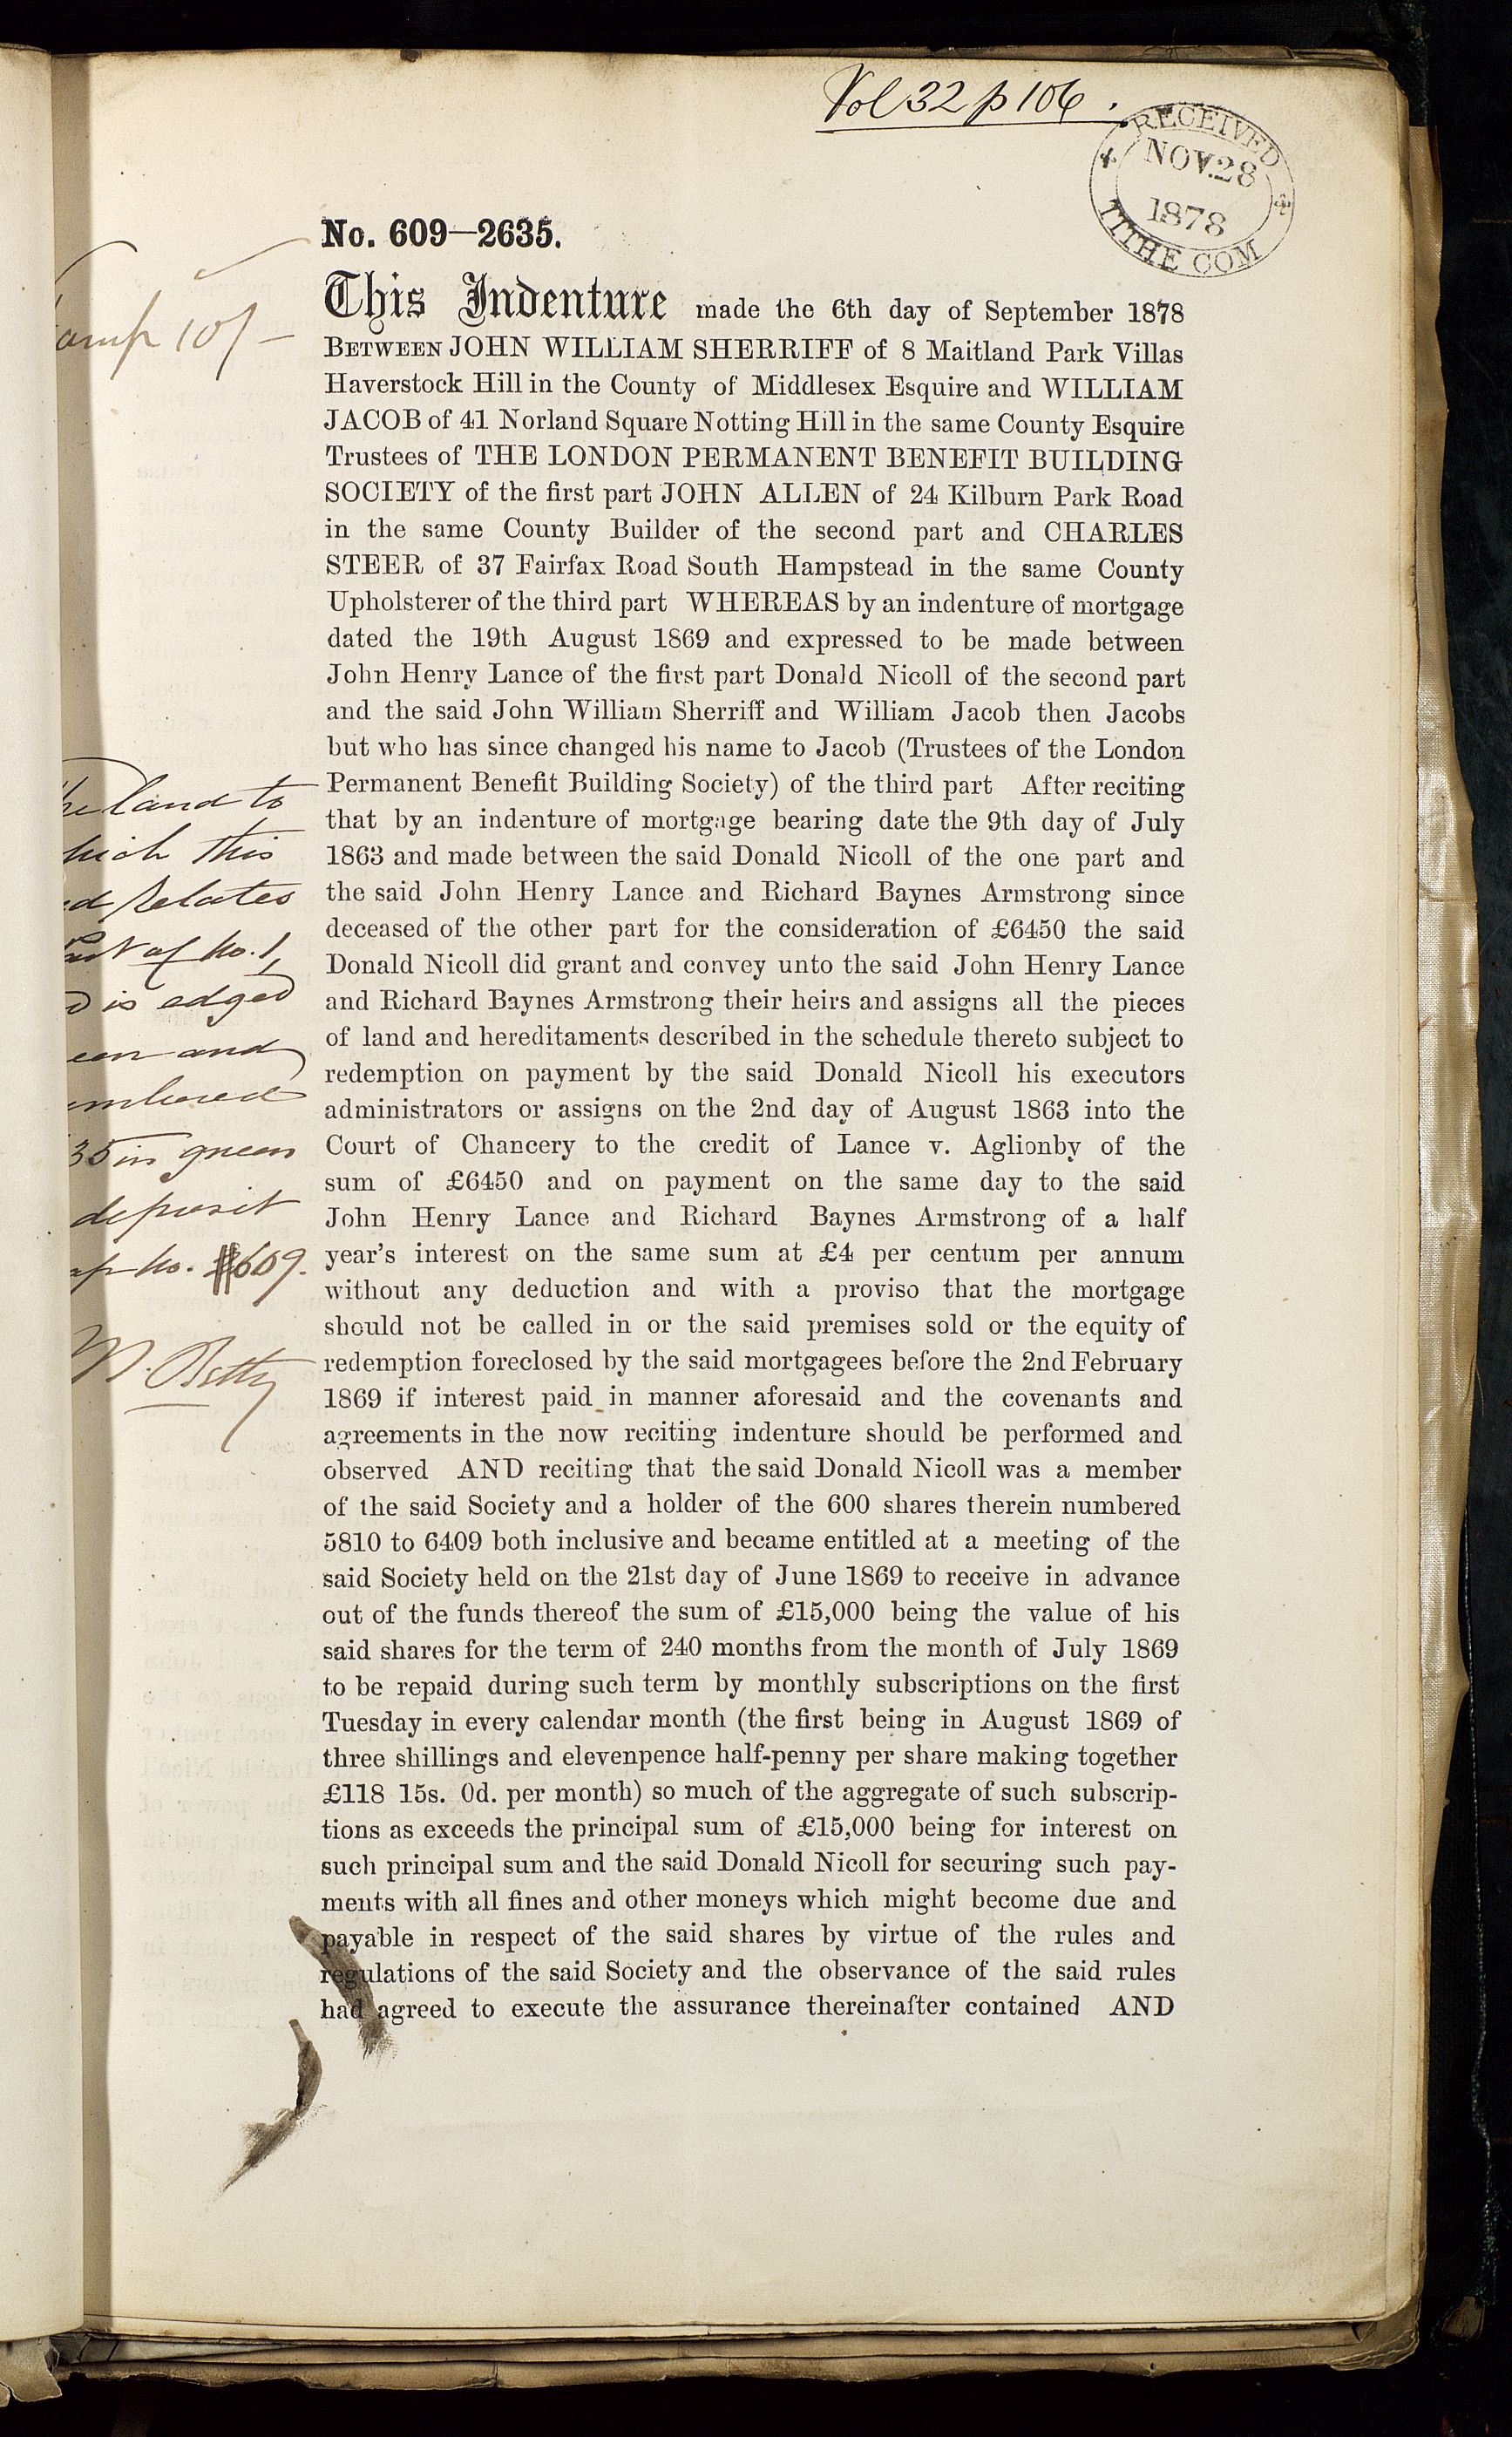 Vol 32 p 106.
RECEIVED
NOV. 28
1878
TITHE COM
No. 609—2635.
This Indenture made the 6th day of September 1878
BETWEEN JOHN WILLIAM SHERRIFF of 8 Maitland Park Villas
Haverstock Hill in the County of Middlesex Esquire and WILLIAM
JACOB of 41 Norland Square Notting Hill in the same County Esquire
Trustees of THE LONDON PERMANENT BENEFIT BUILDING
SOCIETY of the first part JOHN ALLEN of 24 Kilburn Park Road
in the same County Builder of the second part and CHARLES
STEER of 37 Fairfax Road South Hampstead in the same County
Upholsterer of the third part WHEREAS by an indenture of mortgage
dated the 19th August 1869 and expressed to be made between
John Henry Lance of the first part Donald Nicoll of the second part
and the said John William Sherriff and William Jacob then Jacobs
but who has since changed his name to Jacob (Trustees of the London
Permanent Benefit Building Society) of the third part After reciting
that by an indenture of mortgage bearing date the 9th day of July
1863 and made between the said Donald Nicoll of the one part and
the said John Henry Lance and Richard Baynes Armstrong since
deceased of the other part for the consideration of £6450 the said
Donald Nicoll did grant and convey unto the said John Henry Lance
and Richard Baynes Armstrong their heirs and assigns all the pieces
of land and hereditaments described in the schedule thereto subject to
redemption on payment by the said Donald Nicoll his executors
administrators or assigns on the 2nd day of August 1863 into the
Court of Chancery to the credit of Lance v. Aglionby of the
sum of £6450 and on payment on the same day to the said
John Henry Lance and Richard Baynes Armstrong of a half
year's interest on the same sum at £4 per centum per annum
without any deduction and with a proviso that the mortgage
should not be called in or the said premises sold or the equity of
redemption foreclosed by the said mortgagees before the 2nd February
1869 if interest paid in manner aforesaid and the covenants and
agreements in the now reciting indenture should be performed and
observed AND reciting that the said Donald Nicoll was a member
of the said Society and a holder of the 600 shares therein numbered
5810 to 6409 both inclusive and became entitled at a meeting of the
said Society held on the 21st day of June 1869 to receive in advance
out of the funds thereof the sum of £15,000 being the value of his
said shares for the term of 240 months from the month of July 1869
to be repaid during such term by monthly subscriptions on the first
Tuesday in every calendar month (the first being in August 1869 of
three shillings and elevenpence half-penny per share making together
£118 15s. 0d. per month) so much of the aggregate of such subscrip-
tions as exceeds the principal sum of £15,000 being for interest on
such principal sum and the said Donald Nicoll for securing such pay-
ments with all fines and other moneys which might become due and
payable in respect of the said shares by virtue of the rules and
regulations of the said Society and the observance of the said rules
had agreed to execute the assurance thereinafter contained AND
amp 10/-
he land to
hich this
ed relates
art of No. 1,
d is edged
een and
umbered
35 in green
deposit
ap No. 609.
Betty